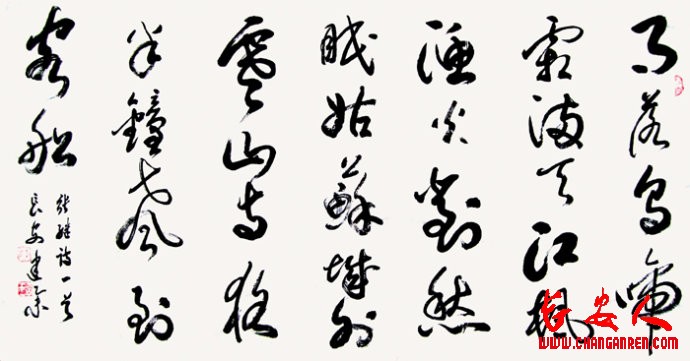 月落烏啼
霜滿天江楓
漁火對愁
眠姑蘇城外
寒山寺夜
半鐘聲到
客船
張继诗一首
長安建
长安人
WWW.CHANGANREN.COM